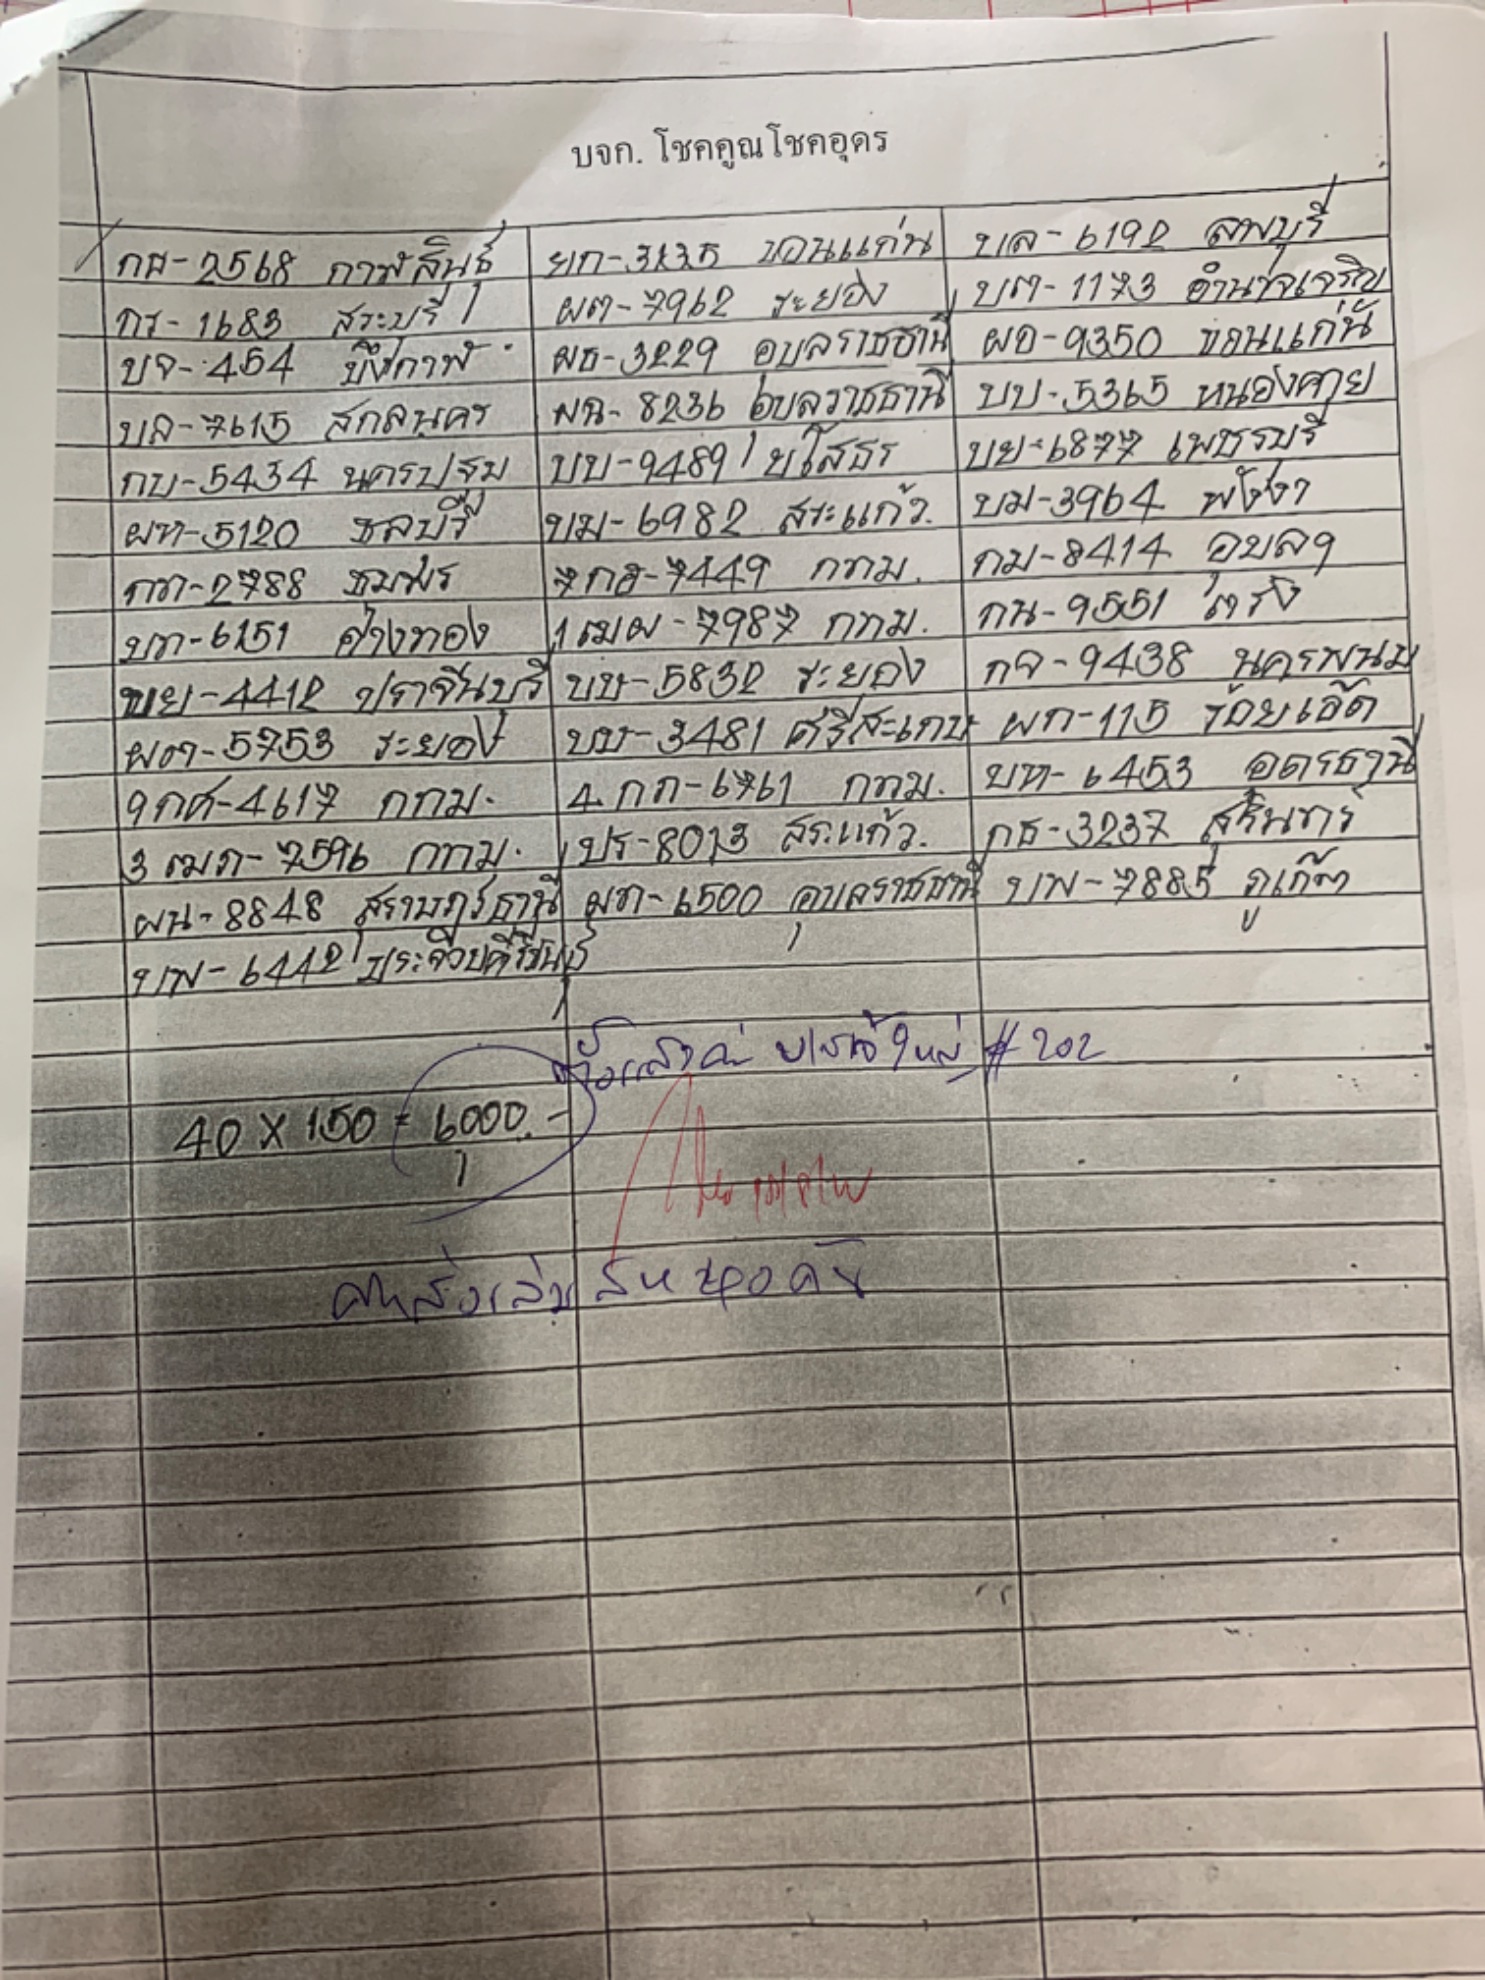 บจก. โชคคูณโชคอุดร
กส-2568 กาฬสินธุ์ ยก-3235 ขอนแก่น บล-6192 ลพบุรี
กร-1683 สระบุรี ผต-7962 ระยอง บต-1173 อำนาจเจริญ
บจ-454 บึงกาฬ ผธ-3229 อุบลราชธานี ผอ-9350 ขอนแก่น
บล-7615 สกลนคร ผฉ-8236 อุบลราชธานี บบ-5365 หนองคาย
กบ-5434 นครปฐม บบ-9489 ยโสธร บย-6877 เพชรบุรี
ผท-5120 ชลบุรี บม-6982 สระแก้ว. บม-3964 พังงา
กท-2788 ชุมพร 7กฮ-7449 กทม. กม-8414 อุบลฯ
บท-6151 อ่างทอง 1ฒผ-7987 กทม. กน-9551 ตรัง
บย-4412 ปราจีนบุรี บบ-5832 ระยอง กจ-9438 นครพนม
ผต-5753 ระยอง บบ-3481 ศรีสะเกษ ผก-115 ร้อยเอ็ด
9กศ-4617 กทม. 4กก-6761 กทม. บห-6453 อุดรธานี
3ฒภ-7596 กทม. บร-8013 สระแก้ว. กธ-3237 สุรินทร์
ผน-8848 สุราษฎร์ธานี ผท-6500 อุบลราชธานี บพ-7885 ภูเก็ต
บพ-6442 ประจวบคีรีขันธ์
# 202
40 X 150 = 6000.-